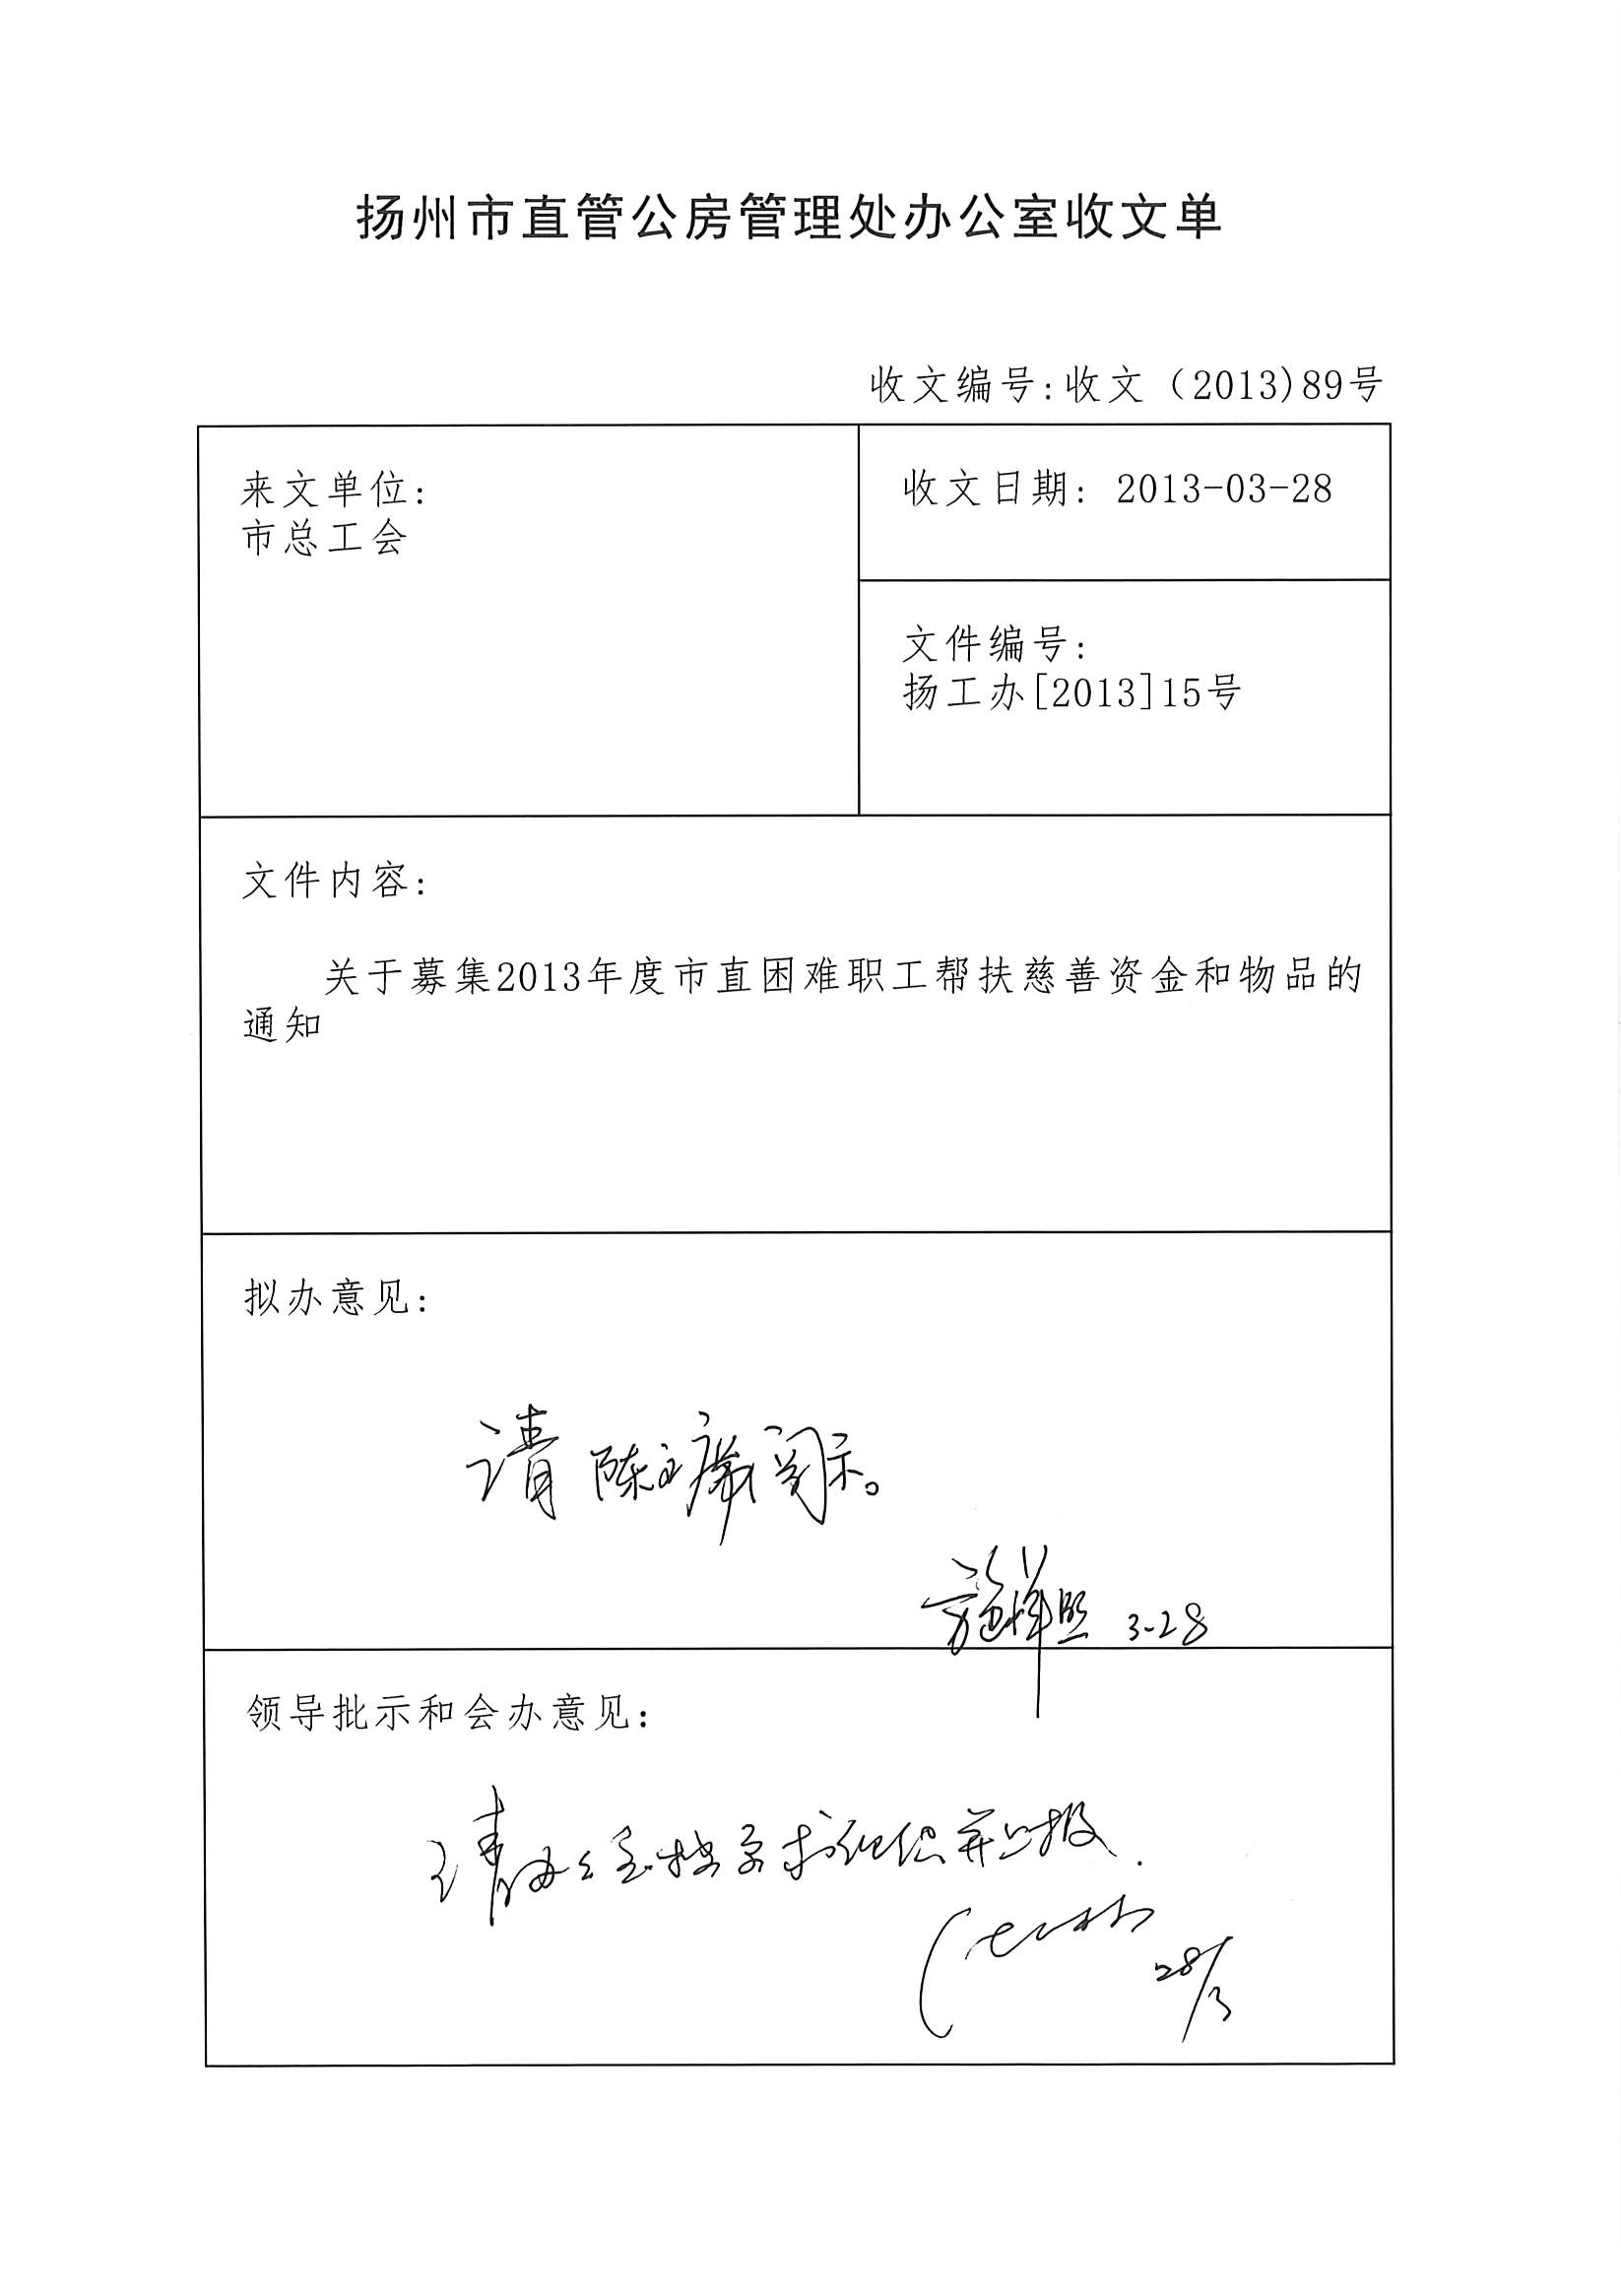 扬州市直管公房管理处办公室收文单
收文编号:收文（2013)89号
来文单位:
市总工会
收文日期: 2013-03-28
文件编号:
扬工办[2013]15号
文件内容:
关于募集2013年度市直困难职工帮扶慈善资金和物品的
通知
拟办意见:
请陈主席阅示。
施祥照 3-28
领导批示和会办意见:
请办公室按要求组织并上报.
28/3